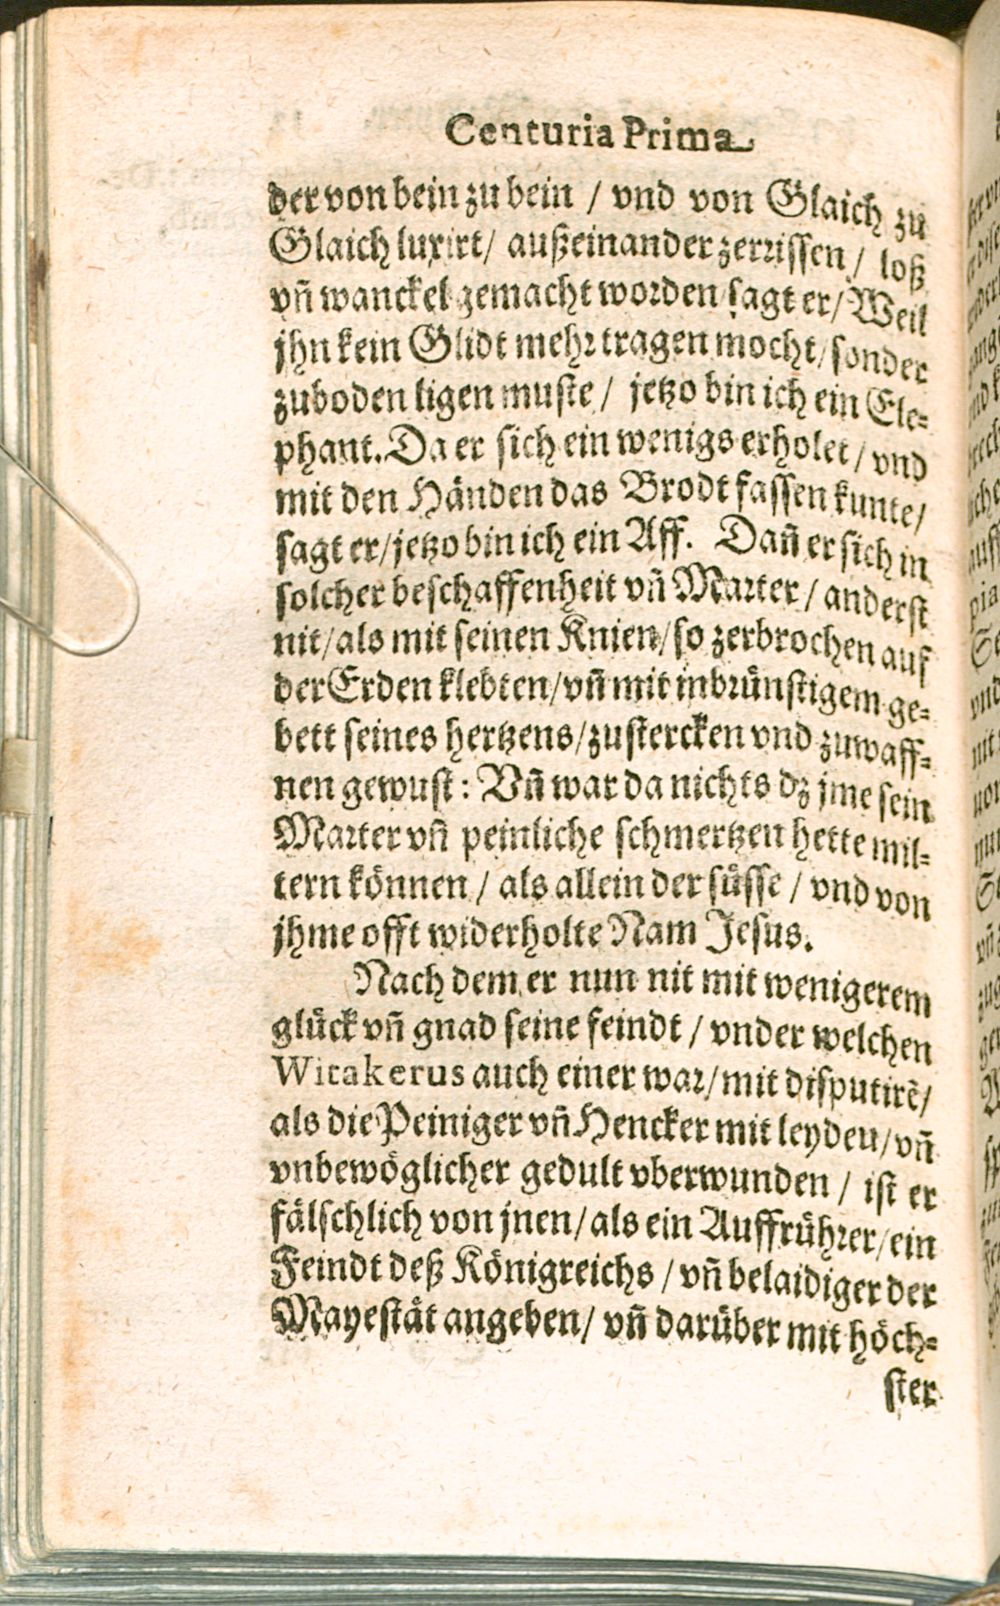 Centuria Prima
der von bein zu bein / vnd von Glaich zu
Glaich luxirt / außeinander zerrissen / loß
vñ wanckel gemacht worden sagt er / Weil
jhn kein Glidt mehr tragen mocht / sonder
zuboden ligen muste / jetzo bin ich ein Ele-
phant. Da er sich ein wenigs erholet / vnd
mit den Händen das Brodt fassen kunte /
sagt er / jetzo bin ich ein Aff. Dañ er sich in
solcher beschaffenheit vñ Marter / anderst
nit / als mit seinen Knien / so zerbrochen auf
der Erden klebten / vñ mit inbrünstigem ge-
bett seines hertzens / zustercken vnd zuwaff-
nen gewust : Vñ war da nichts dz jme sein
Marter vñ peinliche schmertzen hette mil-
tern können / als allein der süsse / vnd von
jhme offt widerholte Nam Jesus.
Nach dem er nun nit mit wenigerem
glück vñ gnad seine feindt / vnder welchen
Witakerus auch einer war / mit disputirẽ /
als die Peiniger vñ Hencker mit leyden / vñ
vnbewöglicher gedult vberwunden / ist er
fälschlich von jnen / als ein Auffrührer / ein
Feindt deß Königreichs / vñ belaidiger der
Mayestät angeben / vñ darüber mit höch-
ster